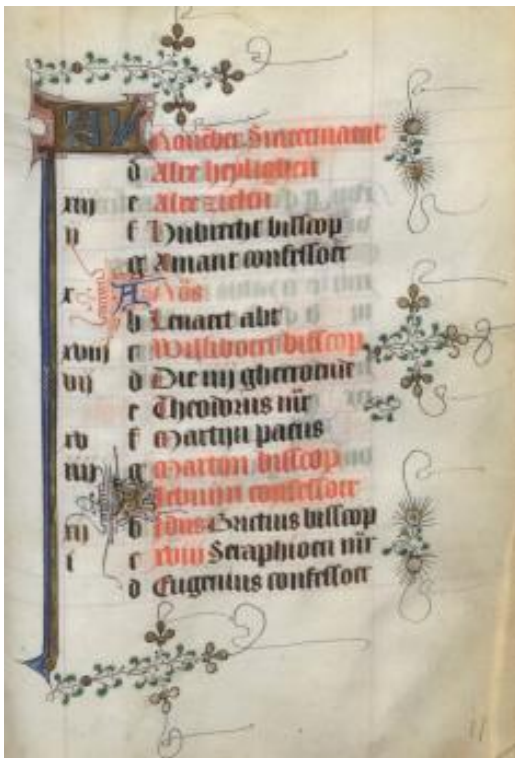 KL
d Alre heylighen
xiij e Alre zielen
ij f Hubrecht bisscop
g Amant confessoer
x A Nōs
b Lenaert abt
xviij c Williboert bisscop
vij d Die iiij ghecroende
e Theodorus mr
xv f Martijn paeus
iiij g Martijn bisscop
A Lebuijn confessoer
xij b Idus Brictius bisscop
i c xviij Seraphioen mr
d Eugenius confessoer